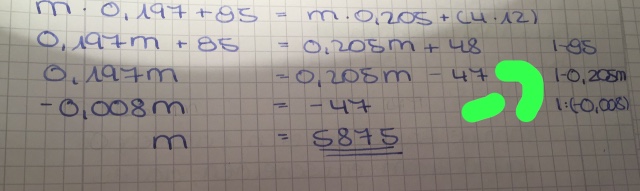 m · 0,197 + 95 = m · 0,205 + (4 · 12)
0,197m + 95 = 0,205m + 48 |-95
0,197m = 0,205m - 47 |-0,205m
-0,008m = -47 |:(-0,008)
m = 5875